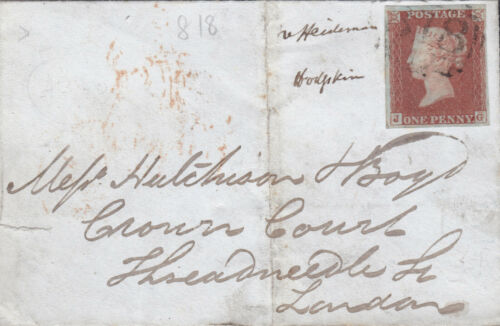 818
Hodgkin
POSTAGE
ONE PENNY
J G
Messrs. Hutchison & Boyd
Crown Court
Threadneedle St
London